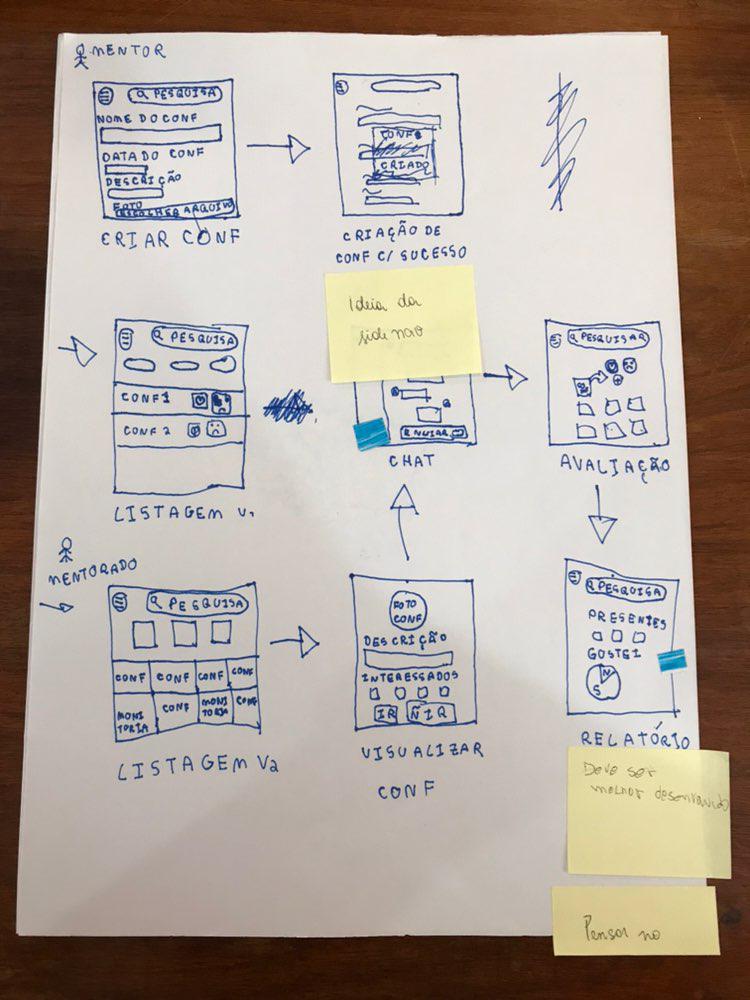 MENTOR
PESQUISA
NOME DO CONF
DATA DO CONF
DESCRIÇÃO
FOTO
ESCOLHER ARQUIVO
CRIAR CONF
CONF
CRIADO
CRIAÇÃO DE
CONF C/ SUCESSO
Ideia da
side nav
PESQUISA
CONF 1
CONF 2
LISTAGEM V1
ENVIAR
CHAT
PESQUISAR
AVALIAÇÃO
MENTORADO
PESQUISA
CONF CONF CONF CONF
MONI
TORIA
CONF
MONI
TORIA
CONF
LISTAGEM V2
FOTO
CONF
DESCRIÇÃO
INTERESSADOS
IR ÑIR
VISUALIZAR
CONF
PESQUISA
PRESENTES
GOSTEI
S N
RELATÓRIO
Deve ser
melhor
Pensar no